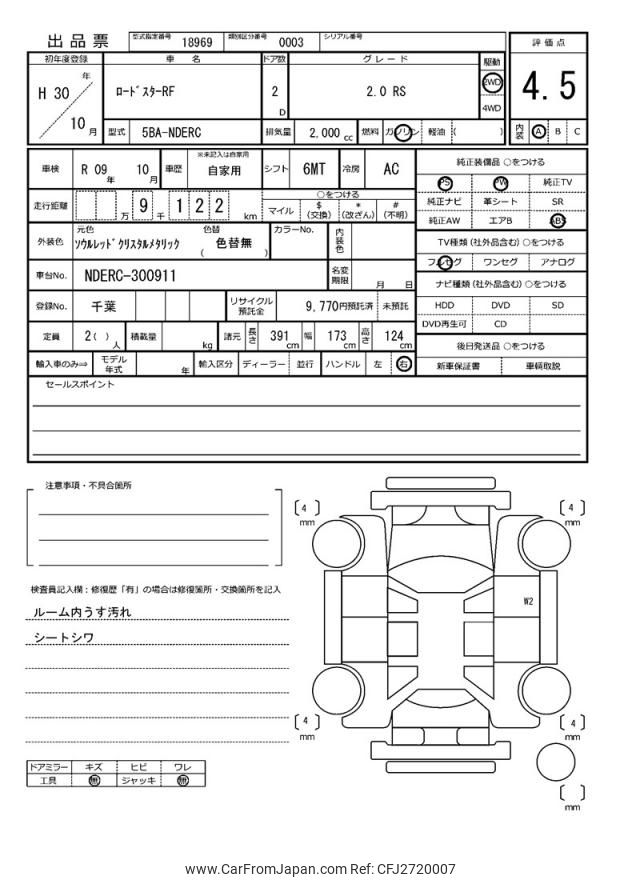 出品票 型式指定番号 18969 類別区分番号 0003 シリアル番号
評価点
4.5
内装 A B C
初年度登録 車名 ドア数 グレード 駆動
H 30 年 10 月
ロードスターRF 2 D 2.0 RS 2WD 4WD
型式 5BA-NDERC 排気量 2,000 cc 燃料 ガソリン 軽油 ( )
車検 R 09 年 10 月 車歴 ※未記入は自家用 自家用 シフト 6MT 冷房 AC
走行距離 万 9 千 1 2 2 km ○をつける
マイル $ (交換) * (改ざん) # (不明)
外装色 元色 ソウルレッドクリスタルメタリック 色替 ( 色替無 ) カラーNo. 内装色
車台No. NDERC-300911 名変期限 月 日
登録No. 千葉 リサイクル預託金 9,770円預託済 未預託
定員 2 ( ) 人 積載量 kg 諸元 長さ 391 cm 幅 173 cm 高さ 124 cm
輸入車のみ⇨ モデル年式 年 輸入区分 ディーラー 並行 ハンドル 左 右
純正装備品 ○をつける
PS PW 純正TV
純正ナビ 革シート SR
純正AW エアB ABS
TV種類 (社外品含む) ○をつける
フルセグ ワンセグ アナログ
ナビ種類 (社外品含む) ○をつける
HDD DVD SD
DVD再生可 CD
後日発送品 ○をつける
新車保証書 車輌取説
セールスポイント
注意事項・不具合箇所
検査員記入欄：修復歴「有」の場合は修復箇所・交換箇所を記入
ルーム内うす汚れ
シートシワ
ドアミラー キズ ヒビ ワレ
工具 無 ジャッキ 無
[ 4 ] mm
[ 4 ] mm
W2
[ 4 ] mm
[ 4 ] mm
[ ] mm
www.CarFromJapan.com Ref: CFJ2720007